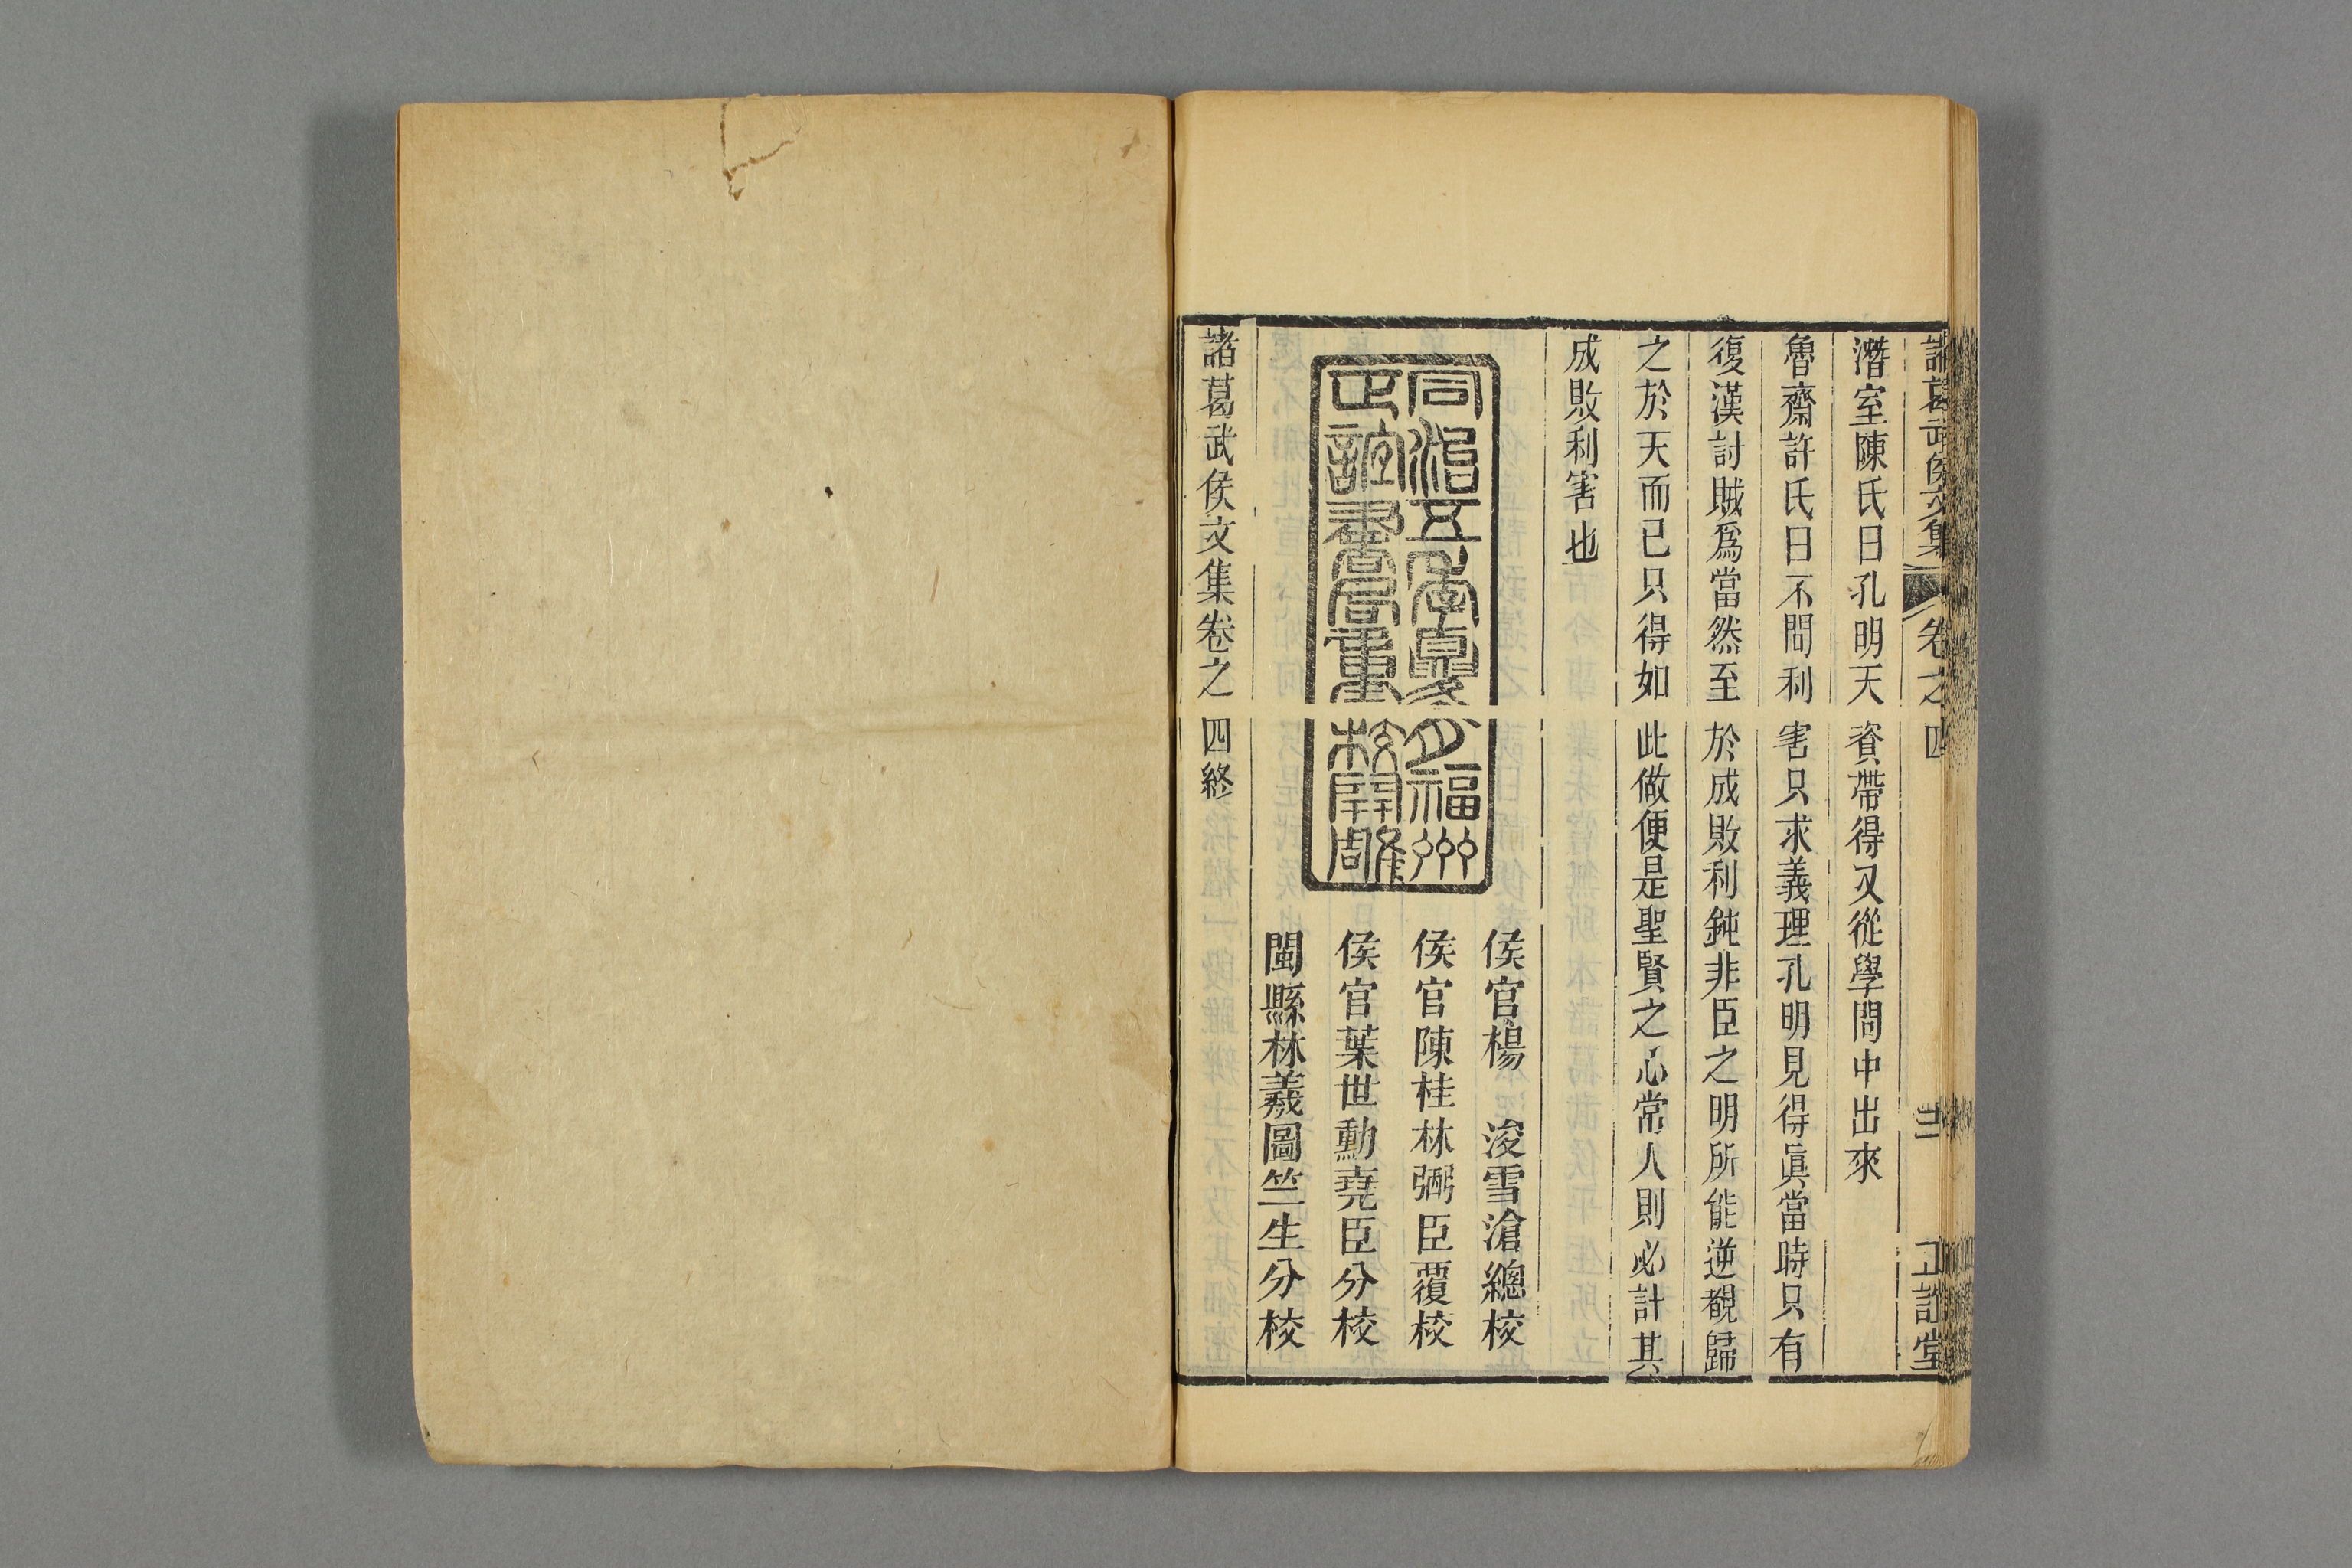 諸葛武侯文集 卷之四 正誼堂
潛室陳氏曰孔明天資帶得又從學問中出來
魯齋許氏曰不問利害只求義理孔明見得眞當時只有
復漢討賊爲當然至於成敗利鈍非臣之明所能逆覩歸
之於天而已只得如此做便是聖賢之心常人則必計其
成敗利害也
同治五年夏月福州
正誼書局重校開雕
侯官楊浚雪滄總校
侯官陳桂林弼臣覆校
侯官葉世勳堯臣分校
閩縣林羲圖竺生分校
諸葛武侯文集卷之四終